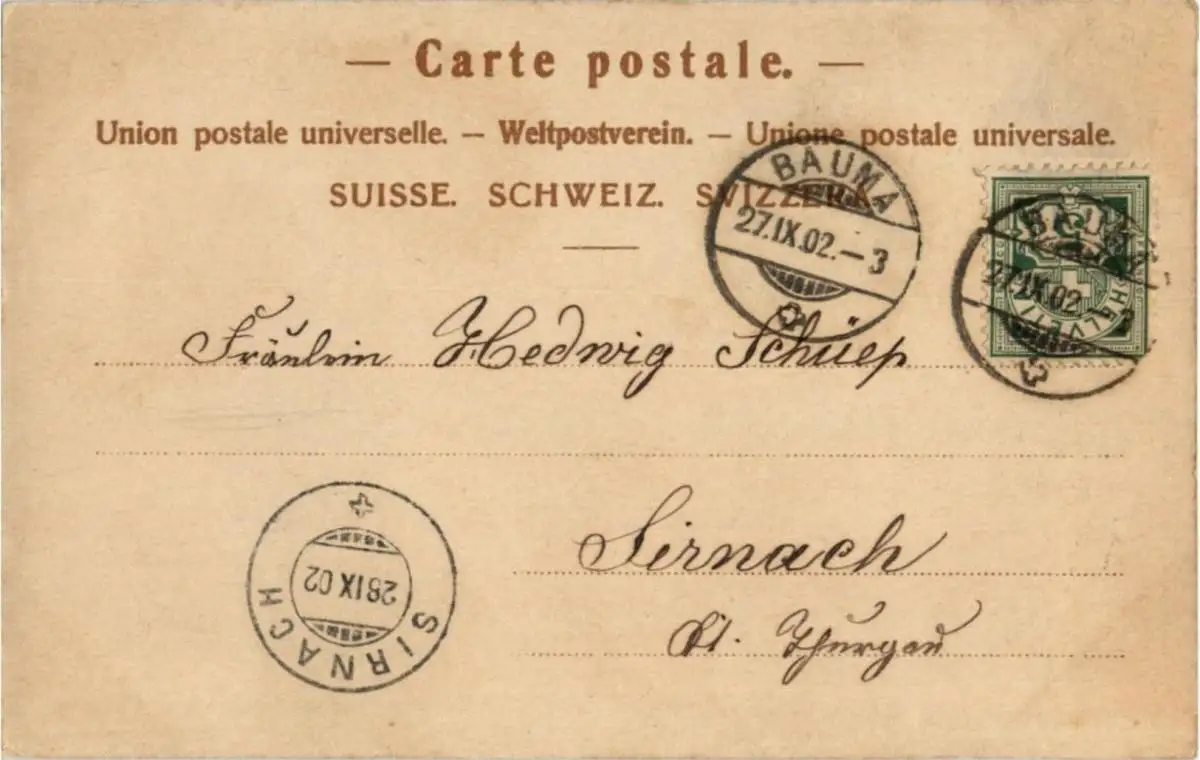 — Carte postale. —
Union postale universelle. — Weltpostverein. — Unione postale universale.
SUISSE. SCHWEIZ. SVIZZERA
BAUMA
27.IX.02.–3
BAUMA
27.IX.02
HELVETIA
Fräulein Hedwig Schüep
Sirnach
Kt. Thurgau
SIRNACH
28 IX 02